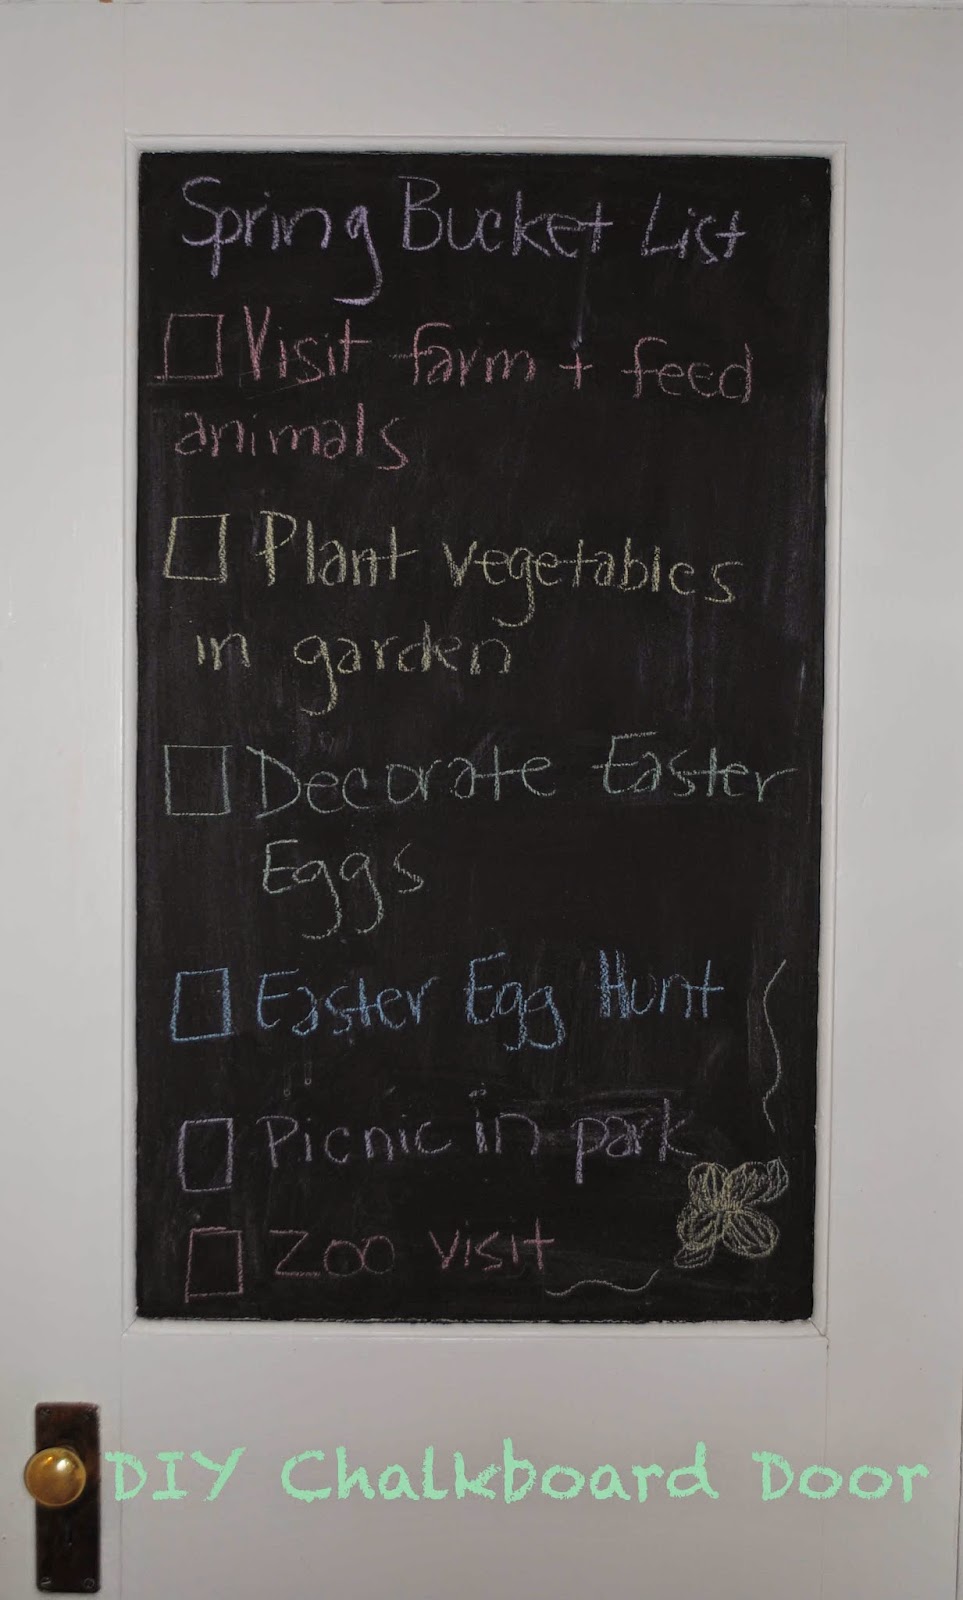 Spring Bucket List
Visit farm + feed
animals
Plant vegetables
in garden
Decorate Easter
Eggs
Easter Egg Hunt
Picnic in park
Zoo visit
DIY Chalkboard Door